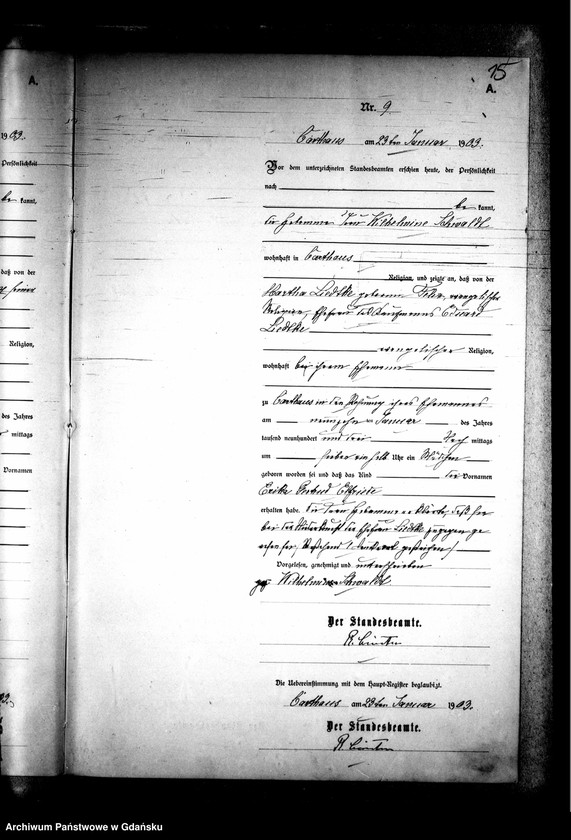 A.
1903.
Persönlichkeit
kannt,
daß von der
Religion,
des Jahres
mittags
Vornamen
15
A.
Nr. 9
Carthaus am 23ten Januar 1903.
Vor dem unterzeichneten Standesbeamten erschien heute, der Persönlichkeit
nach
be kannt,
die Hebamme Frau Wilhelmine
wohnhaft in Carthaus
Religion, und zeigte an, daß von der
Liedtke geborenen evangelischer
Religion, Ehefrau des Kaufmanns Eduard
Liedtke
evangelischer Religion,
wohnhaft bei ihrem Ehemann
zu Carthaus in der Wohnung ihres Ehemannes
am neunzehnten Januar des Jahres
tausend neunhundert und drei Nach mittags
um sieben ein halb Uhr ein Mädchen
geboren worden sei und daß das Kind die Vornamen
Erika Gertrud Elfriede
erhalten habe. Die Frau Hebamme daß sie
bei der Niederkunft der Ehefrau Liedtke zugegen ge
wesen sei.
Vorgelesen, genehmigt und unterschrieben
gez. Wilhelmine
Der Standesbeamte.
R.
Die Uebereinstimmung mit dem Haupt-Register beglaubigt.
Carthaus am 23ten Januar 1903.
Der Standesbeamte.
R.
Archiwum Państwowe w Gdańsku